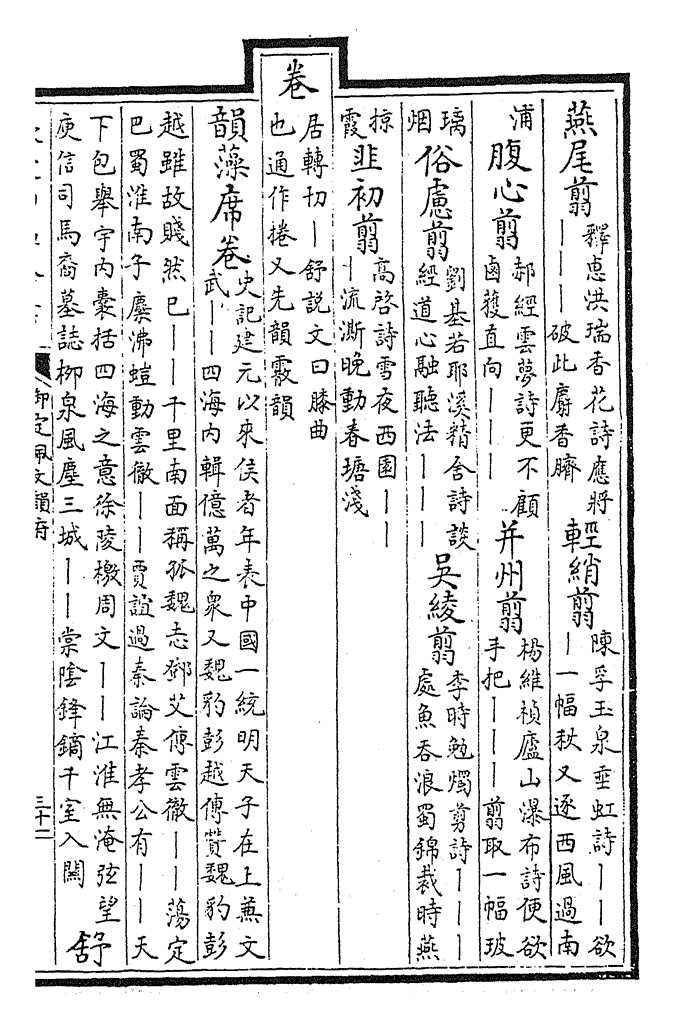 燕尾翦
釋惠洪瑞香花詩應將
———破此麝香臍
輕綃翦
陳孚玉泉垂虹詩——欲
—一幅秋又逐西風過南
浦
腹心翦
郝經雲夢詩更不顧
鹵獲直向———
并州翦
楊維楨廬山瀑布詩便欲
手把———翦取一幅玻
璃
烟
俗慮翦
劉基若耶溪精舍詩談
經道心融聽法———
吳綾翦
李時勉燭剪詩———
處魚吞浪蜀錦裁時燕
掠
霞
韭初翦
高啓詩雪夜西園——
—流澌晚動春塘淺
卷
居轉切—舒説文曰膝曲
也通作捲又先韻霰韻
韻藻席卷
史記建元以來侯者年表中國一統明天子在上兼文
武——四海内輯億萬之衆又魏豹彭越傳贊魏豹彭
越雖故賤然已——千里南面稱孤魏志鄧艾傳雲徹——蕩定
巴蜀淮南子麋沸螘動雲徹——賈誼過秦論秦孝公有——天
下包舉宇内囊括四海之意徐陵檄周文——江淮無淹弦望
庾信司馬裔墓誌柳泉風塵三城——棠陰鋒鏑千室入關
舒
御定佩文韻府
三十二